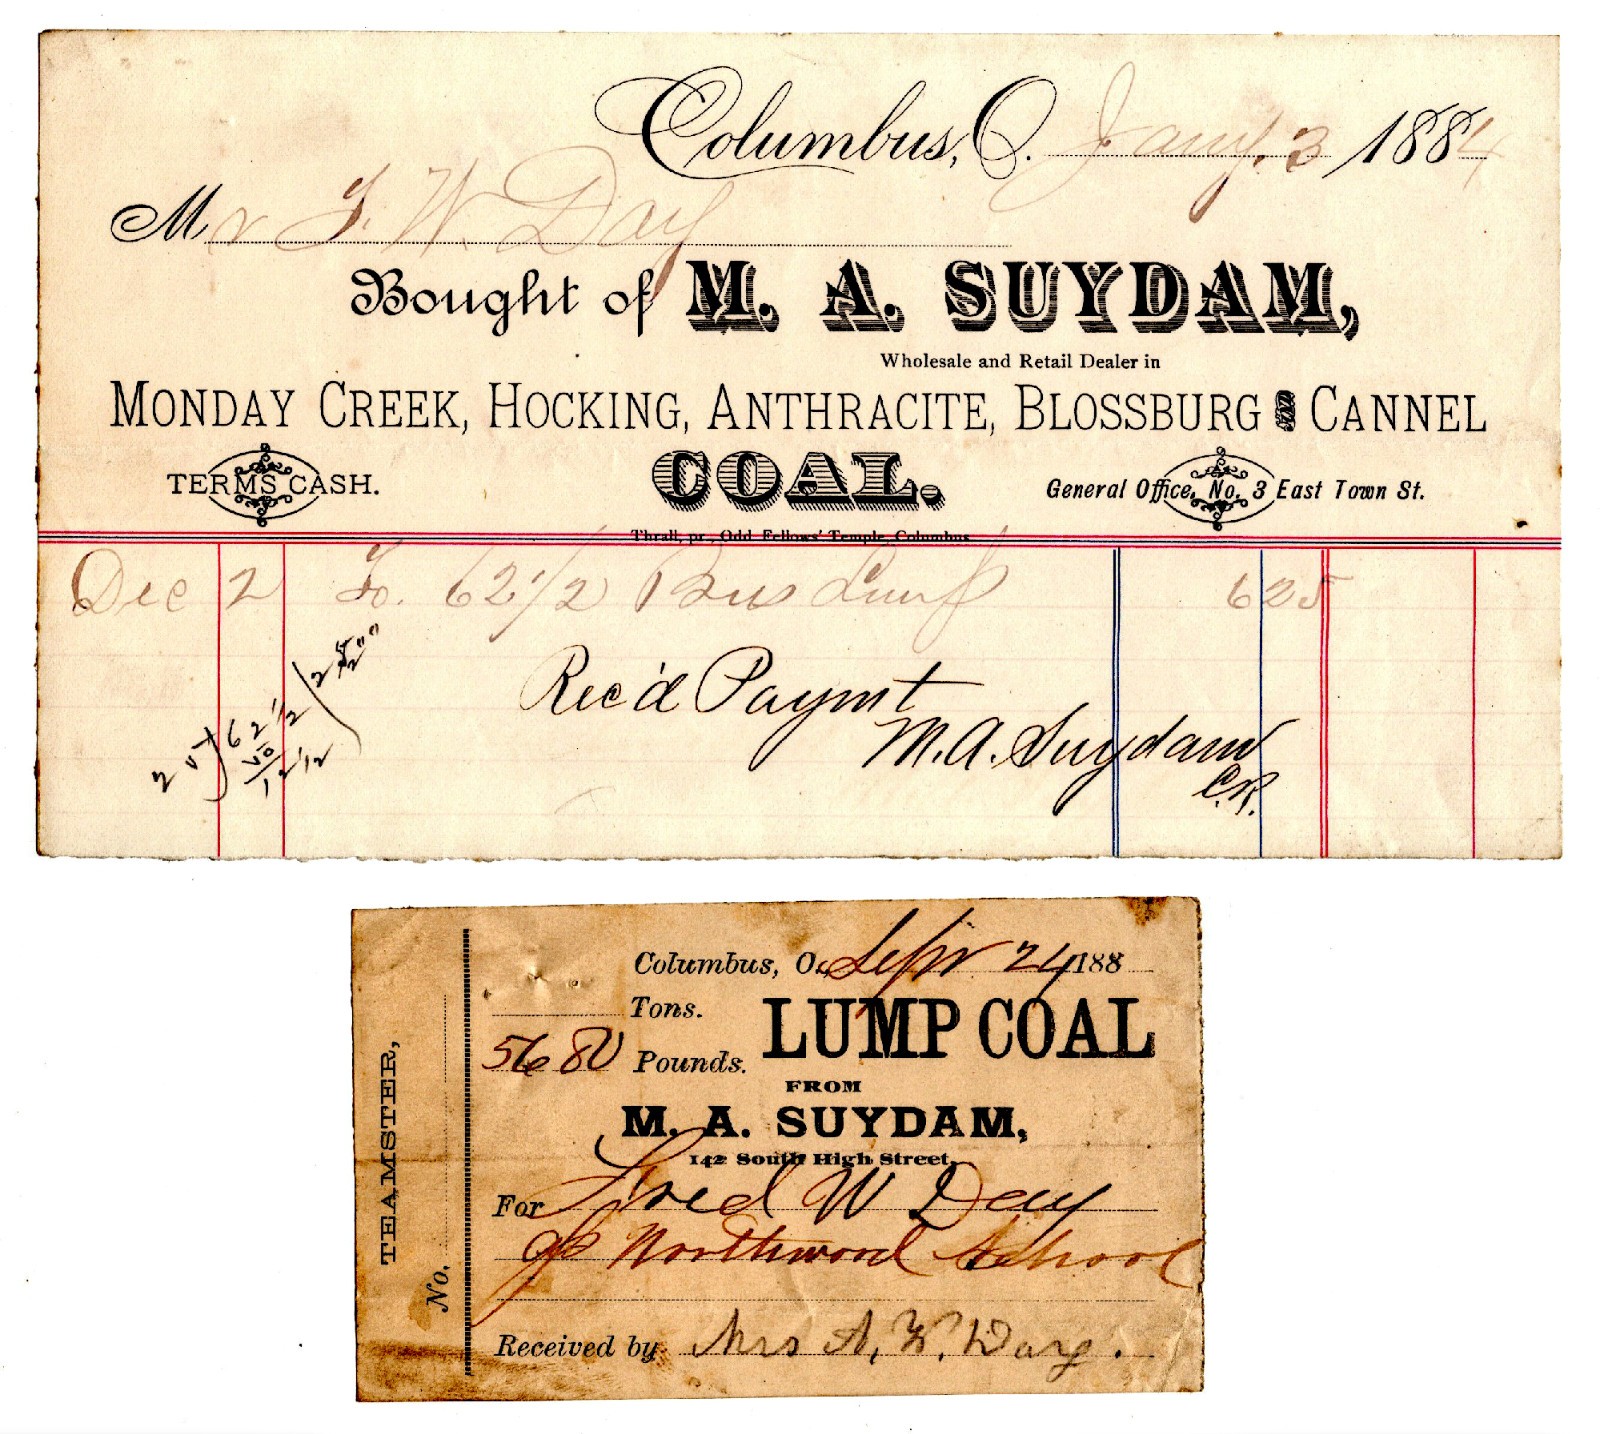 Columbus, O. Jany. 3 1884
Mr F. W. Day
Bought of M. A. SUYDAM,
Wholesale and Retail Dealer in
MONDAY CREEK, HOCKING, ANTHRACITE, BLOSSBURG AND CANNEL
TERMS CASH.
COAL.
General Office, No. 3 East Town St.
Thrall, pr., Odd Fellows' Temple, Columbus
Dec 2 To. 62 1/2 Bus Lump 6 25
Rec'd Paymt
M. A. Suydam
C.R.
62 1/2
50
12 1/2
Columbus, O. Sepr 24 188
Tons.
5680 Pounds.
LUMP COAL
FROM
M. A. SUYDAM,
142 South High Street,
For Fred W Day
Northwood School
Received by Mrs A. W.
TEAMSTER,
No.